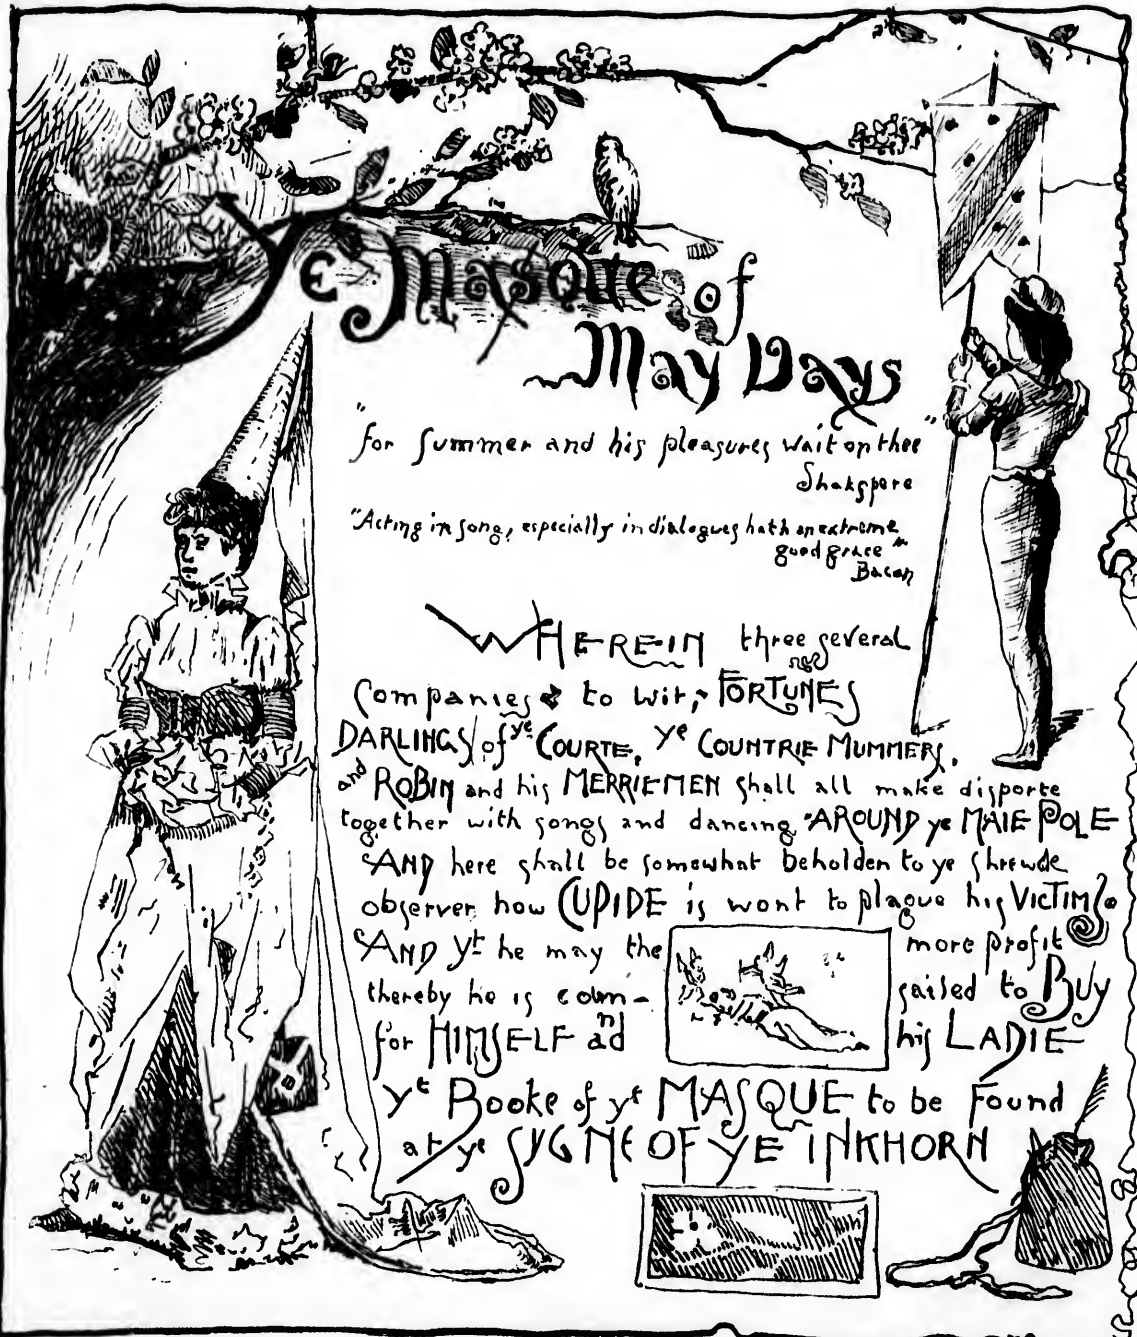 Ye Masque of
May Days
"for summer and his pleasures wait on thee"
Shakspere
"Acting in song, especially in dialogues hath an extreme
good grace"
Bacon
WHEREIN three several
Companies to wit, FORTUNES
DARLINGS of ye COURTE, ye COUNTRIE MUMMERS,
and ROBIN and his MERRIE MEN shall all make disporte
together with songs and dancing AROUND ye MAIE POLE
AND here shall be somewhat beholden to ye shrewde
observer how CUPIDE is wont to plague his VICTIMS
AND yt he may the more profit
thereby he is coun- sailed to Buy
for HIMSELF and his LADIE
yt Booke of yt MASQUE to be Found
at ye SYGNE OF YE INKHORN